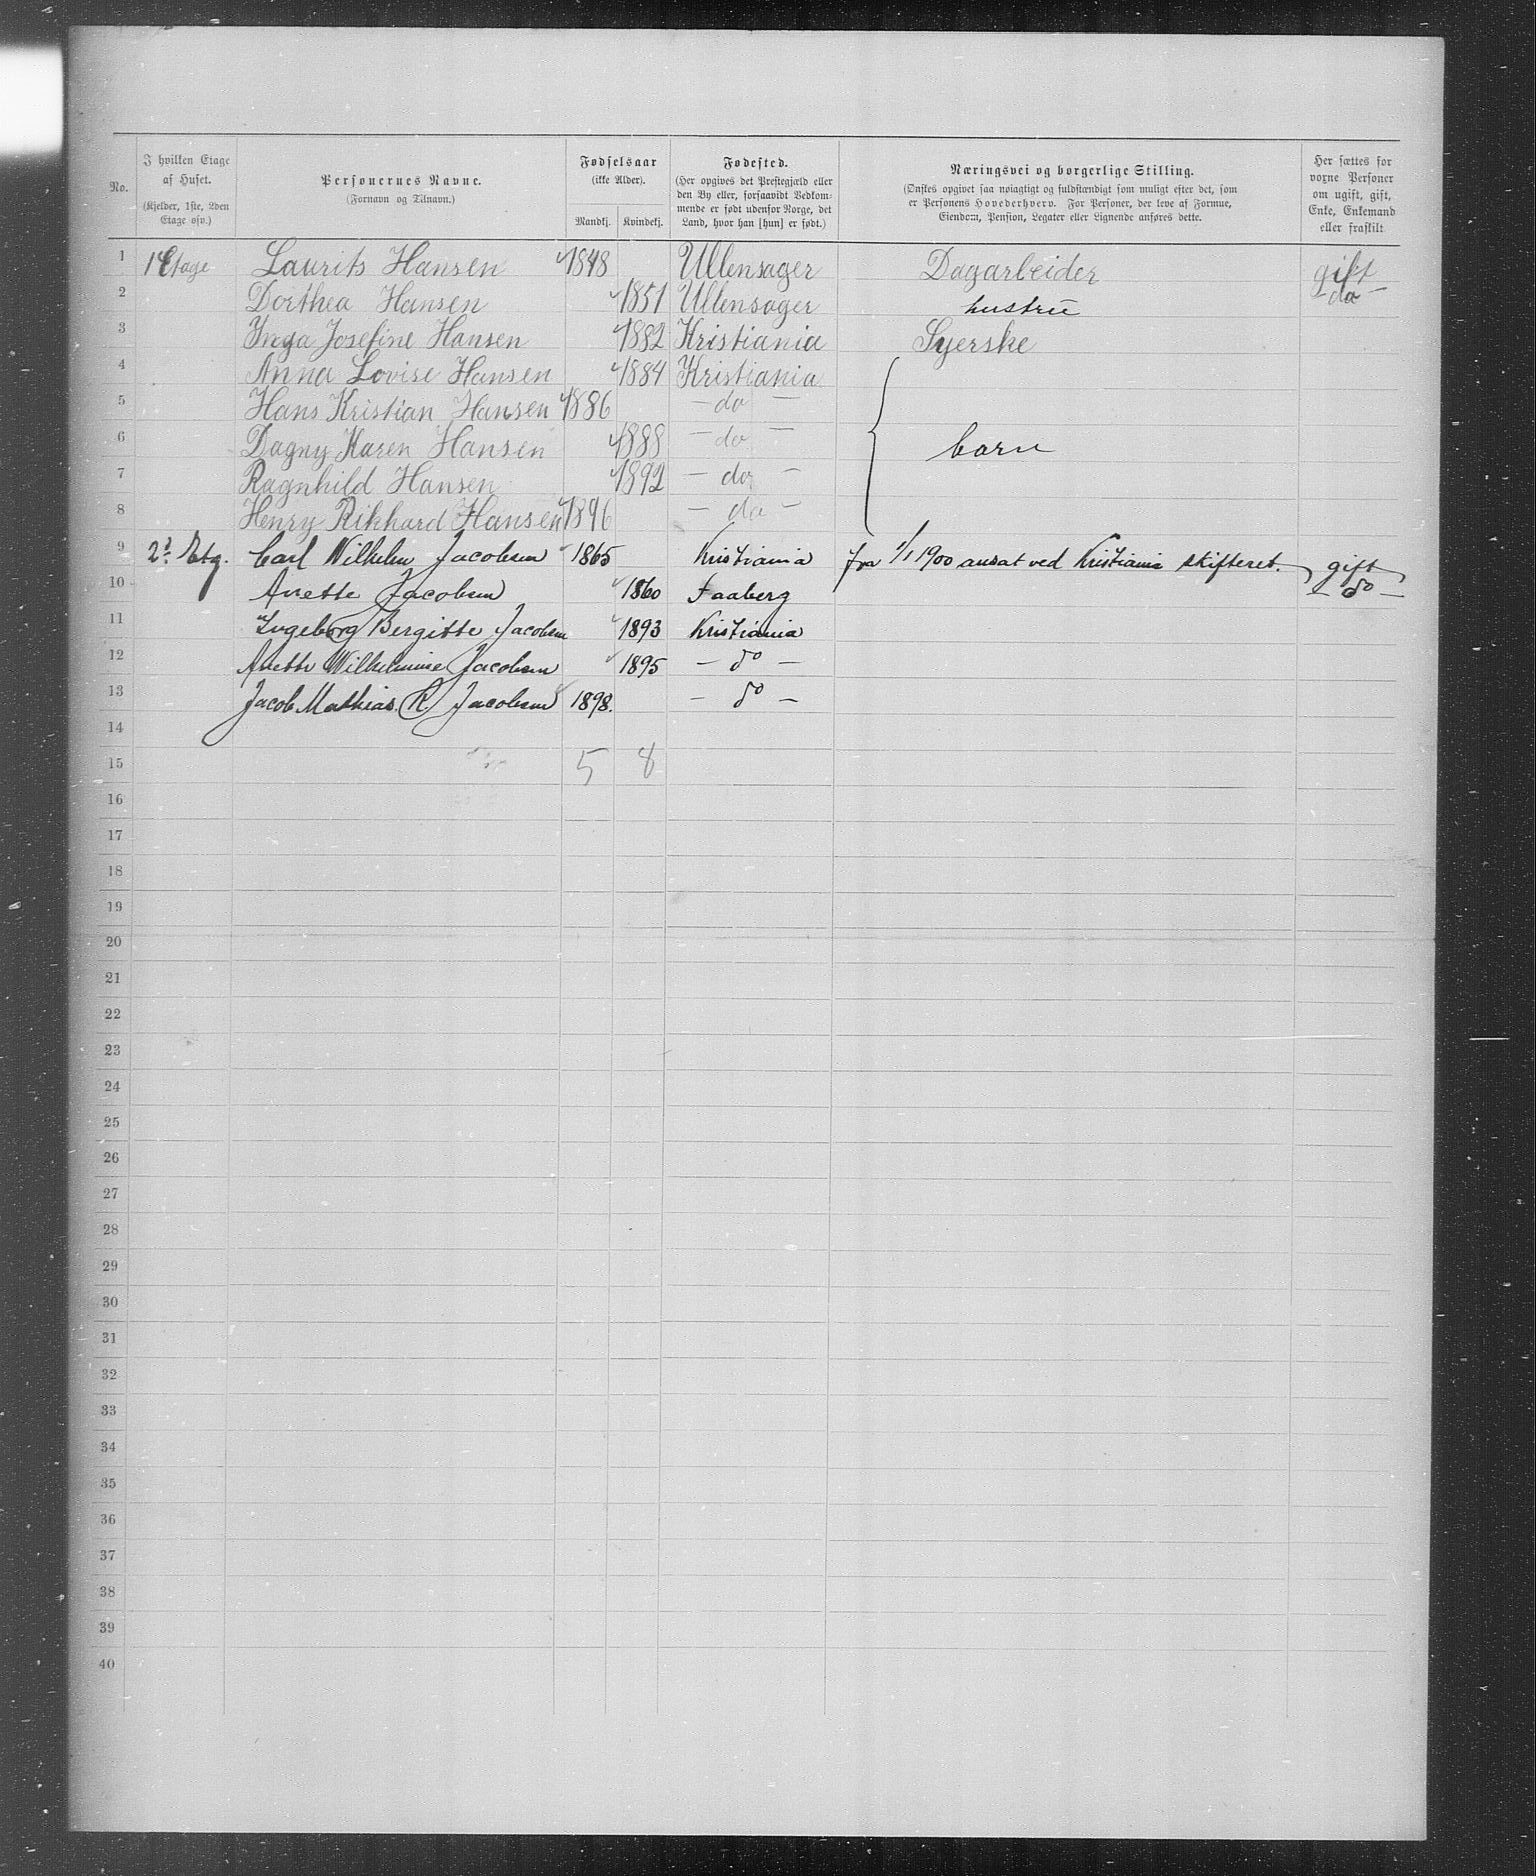 No.
I hvilken Etage af Huset.
(Kjelder, 1ste, 2den Etage osv.)
Personernes Navne.
(Fornavn og Tilnavn.)
Fødselsaar
(ikke Alder).
Mandkj. Kvindekj.
Fødested.
(Her opgives det Prestegjæld eller den By eller, forsaavidt Vedkommende er født udenfor Norge, det Land, hvor han [hun] er født.)
Næringsvei og borgerlige Stilling.
(Ønskes opgivet saa nøiagtigt og fuldstændigt som muligt efter det, som er Personens Hovederhverv. For Personer, der leve af Formue, Eiendom, Pension, Legater eller Lignende anføres dette.
Her sættes for voxne Personer om ugift, gift, Enke, Enkemand eller fraskilt
1 1 Etage Laurits Hansen 1848 Ullensager Dagarbeider gift
2 Dorthea Hansen 1851 Ullensager hustru — do —
3 Inga Josefine Hansen 1882 Kristiania Syerske
4 Anna Lovise Hansen 1884 Kristiania
5 Hans Kristian Hansen 1886 — do —
6 Dagny Karen Hansen 1888 — do — barn
7 Ragnhild Hansen 1892 — do —
8 Henry Rikhard Hansen 1896 — do —
9 2d Etg. Carl Wilhelm Jacobsen 1865 Kristiania fra 1/1 1900 ansat ved Kristiania skifteret. gift
10 Anette Jacobsen 1860 Faaberg — do —
11 Ingeborg Bergitte Jacobsen 1893 Kristiania
12 Anette Wilhelmine Jacobsen 1895 — do —
13 Jacob Mathias R. Jacobsen 1898. — do —
14
15 5 8
16
17
18
19
20
21
22
23
24
25
26
27
28
29
30
31
32
33
34
35
36
37
38
39
40